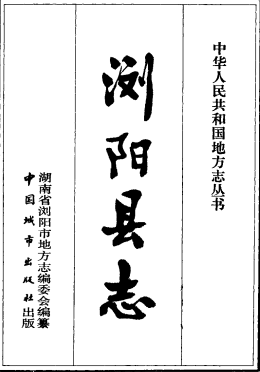 中华人民共和国地方志丛书
浏阳县志
湖南省浏阳市地方志编委会编纂
中国城市出版社出版